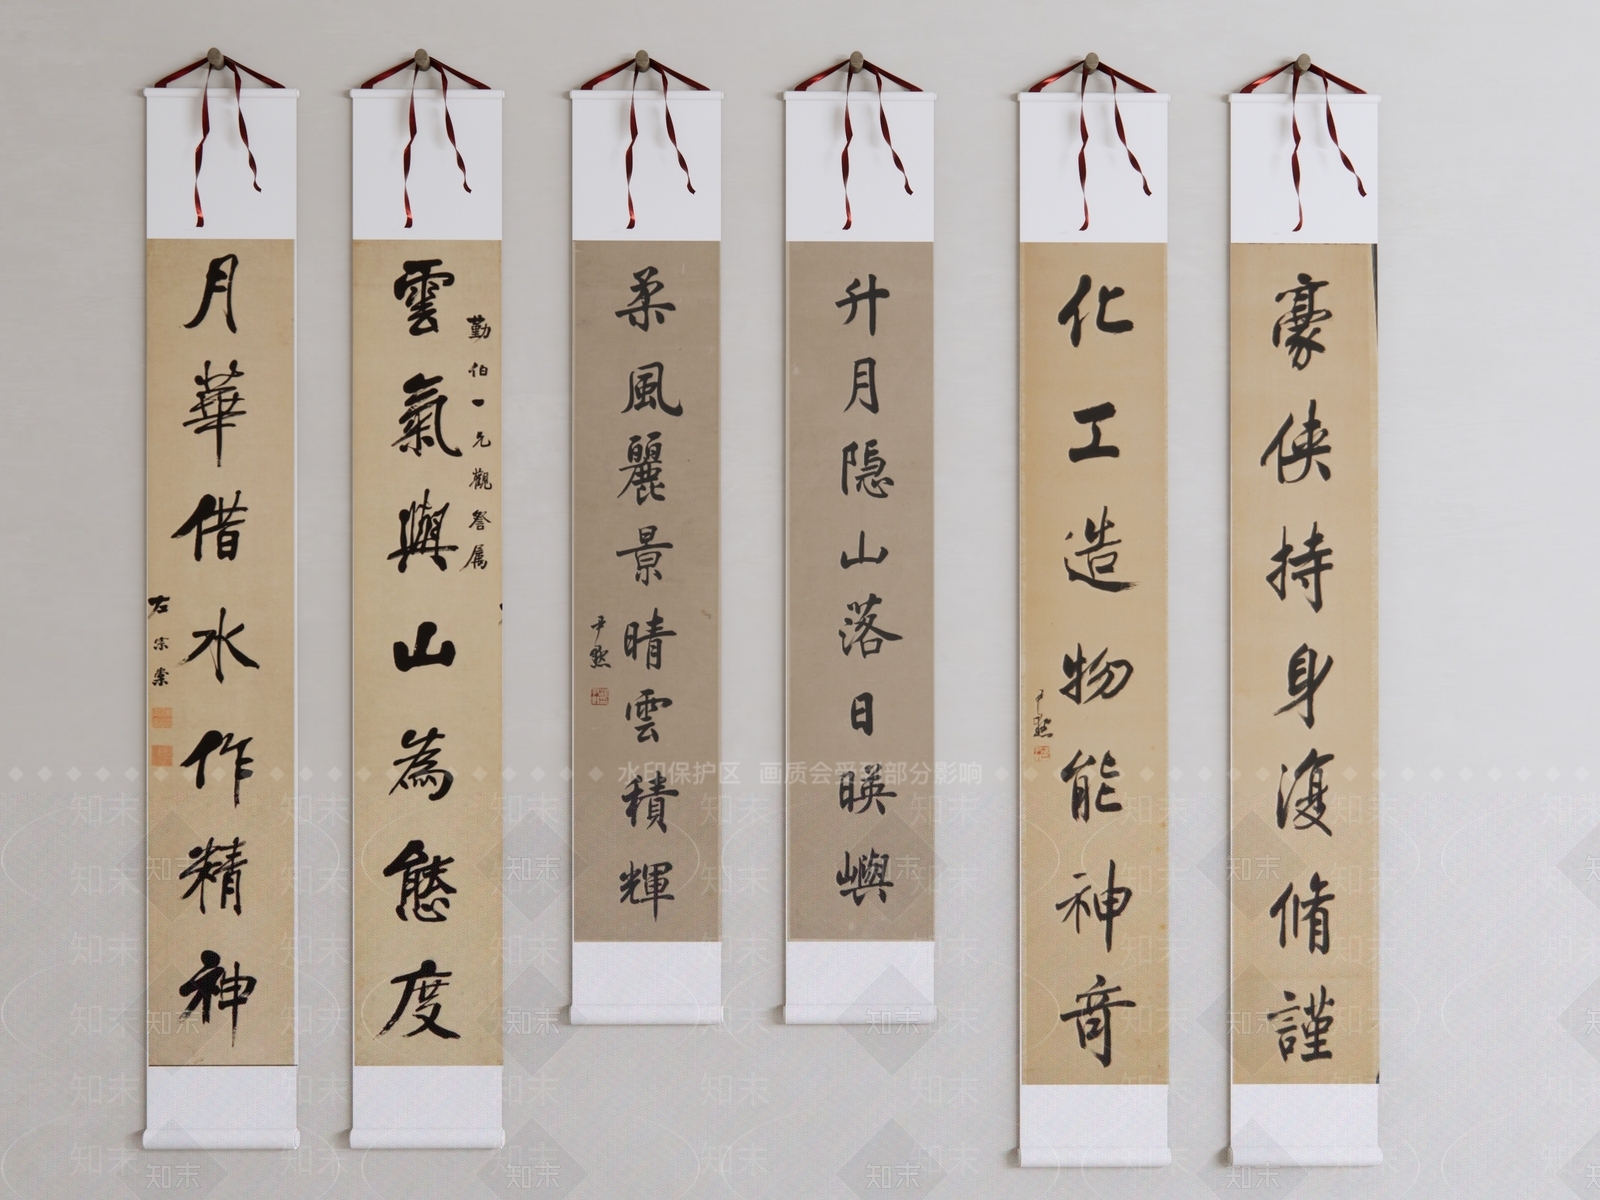 豪俠持身復脩謹
化工造物能神奇
尹默
升月隐山落日暎嶼
柔風麗景晴雲積輝
尹默
勤伯一兄觀詧属
雲氣與山為態度
月華借水作精神
左宗棠
水印保护区 画质会受到部分影响
知末